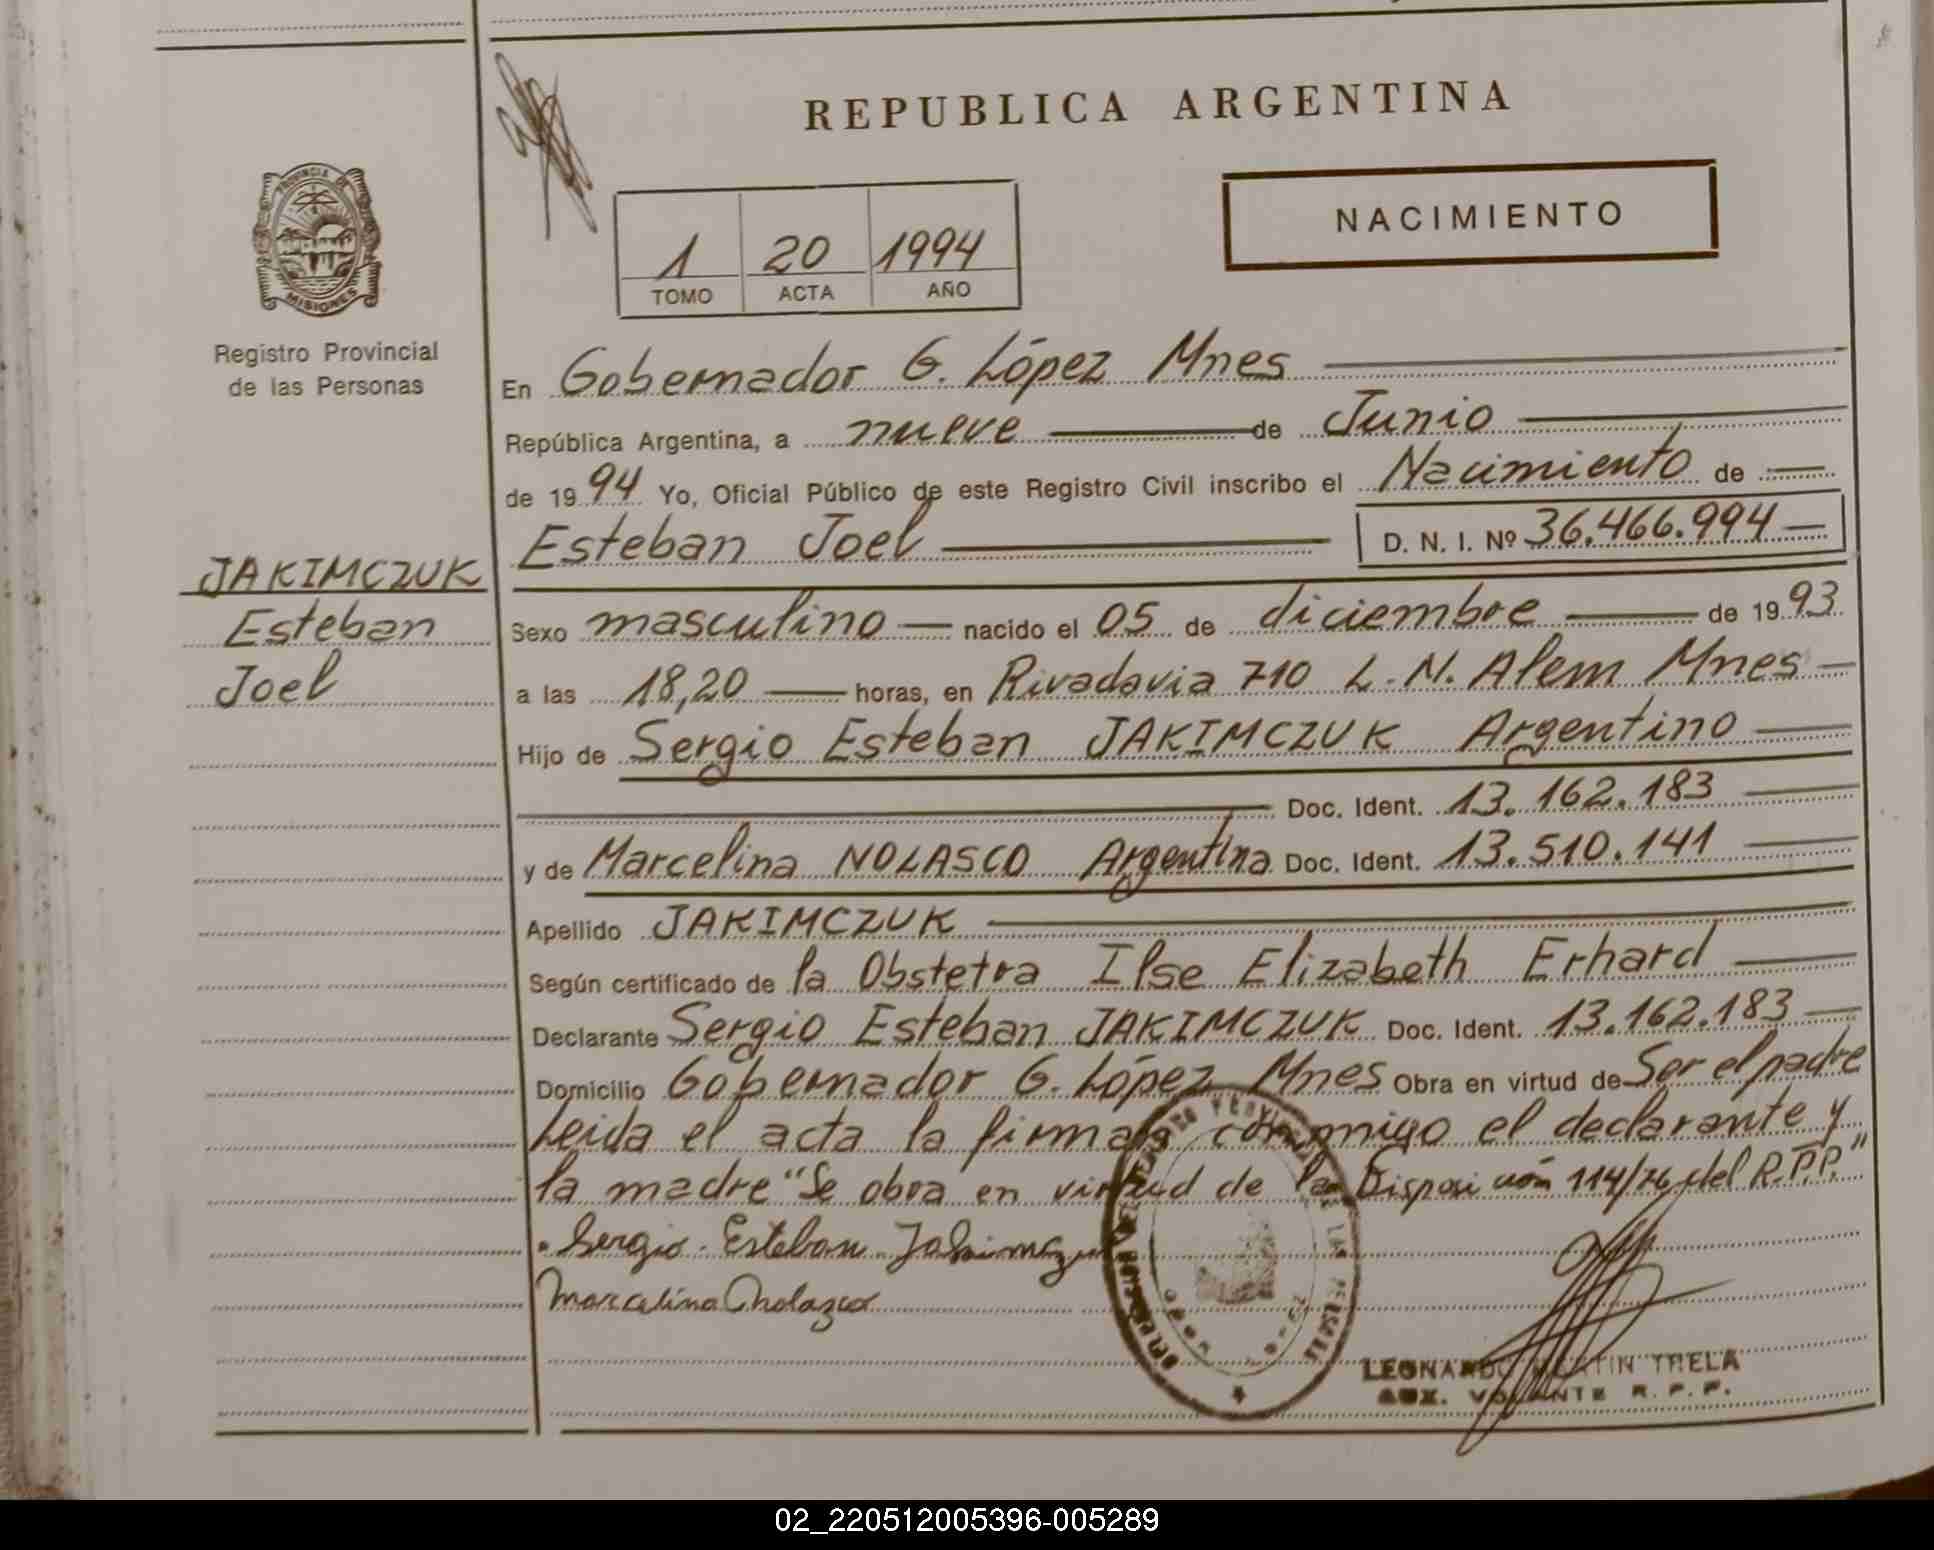 REPUBLICA ARGENTINA
PROVINCIA DE
MISIONES
Registro Provincial
de las Personas
1 20 1994
TOMO ACTA AÑO
NACIMIENTO
En Gobernador G. López Mnes
República Argentina, a nueve de Junio
de 1994 Yo, Oficial Público de este Registro Civil inscribo el Nacimiento de
Esteban Joel D. N. I. Nº 36.466.994
JAKIMCZUK
Esteban
Joel
Sexo masculino nacido el 05 de diciembre de 1993
a las 18,20 horas, en Rivadavia 710 L. N. Alem Mnes
Hijo de Sergio Esteban JAKIMCZUK Argentino
Doc. Ident. 13.162.183
y de Marcelina NOLASCO Argentina Doc. Ident. 13.510.141
Apellido JAKIMCZUK
Según certificado de la Obstetra Ilse Elizabeth Erhard
Declarante Sergio Esteban JAKIMCZUK Doc. Ident. 13.162.183
Domicilio Gobernador G. López Mnes Obra en virtud de Ser el padre
Leida el acta la firman conmigo el declarante y
la madre "Se obra en virtud de la Disposición 114/76 del R.P.P."
Sergio Esteban Jakimczuk
Marcelina Nolazco
LEONARDO MARTIN TRELA
AUX. VOLANTE R. P. P.
02_220512005396-005289